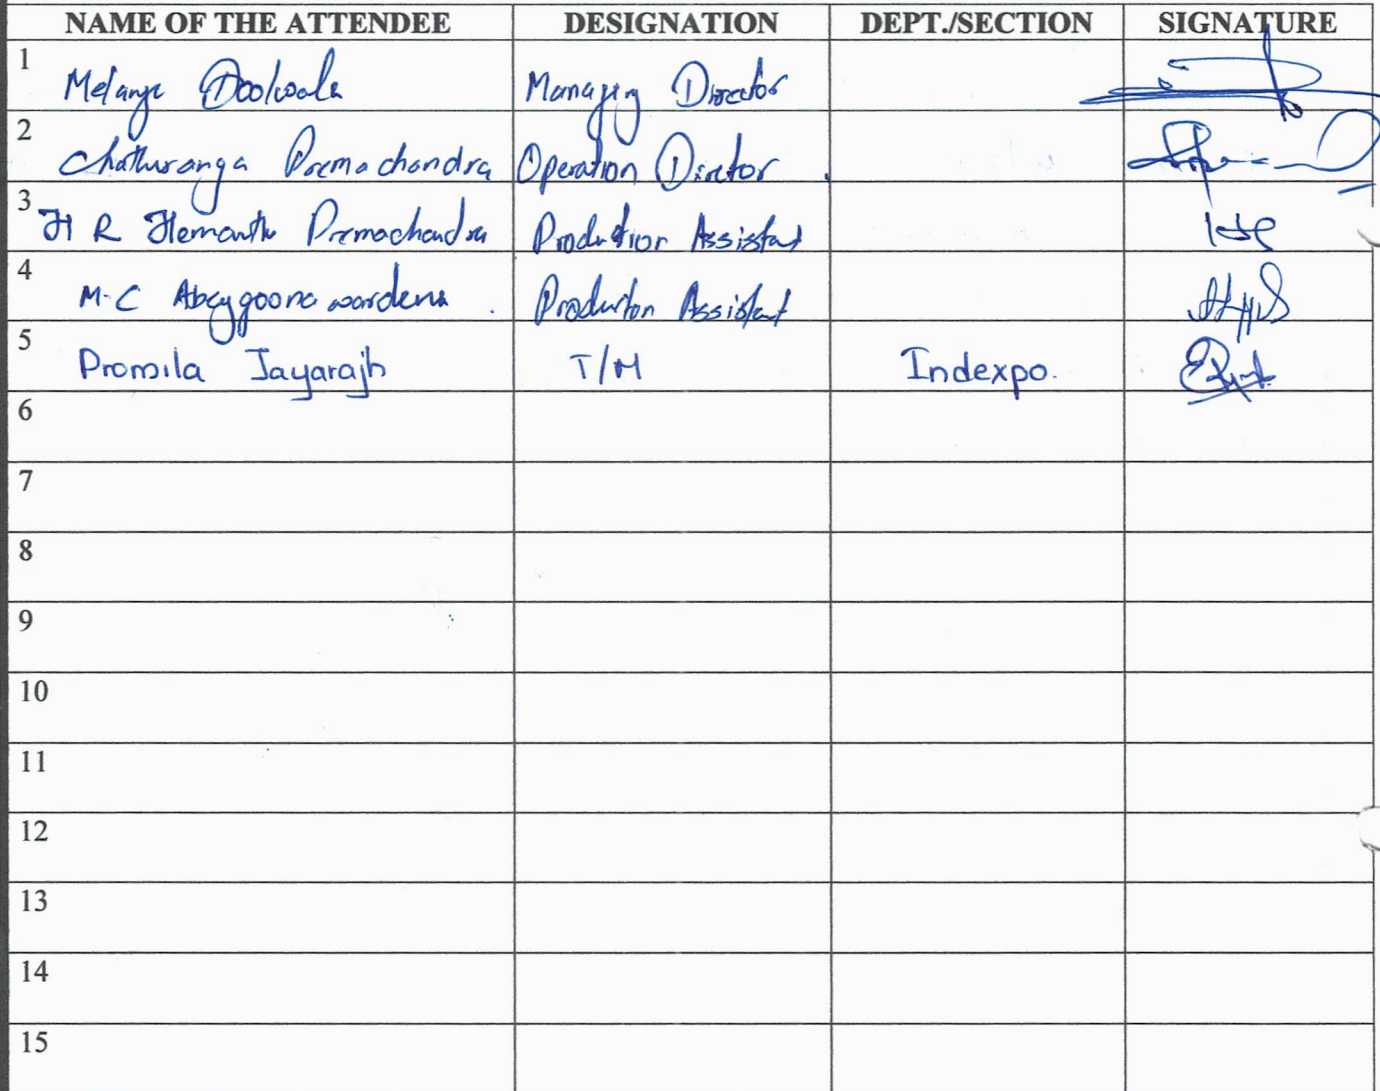 NAME OF THE ATTENDEE DESIGNATION DEPT./SECTION SIGNATURE
1 Melange Doolwala Managing Director
2 Chathuranga Premachandra Operation Director
3 H R Hemantha Premachandra Production Assistant
4 M.C Abeygoonawardena Production Assistant
5 Promila Jayarajh T/M Indexpo.
6
7
8
9
10
11
12
13
14
15